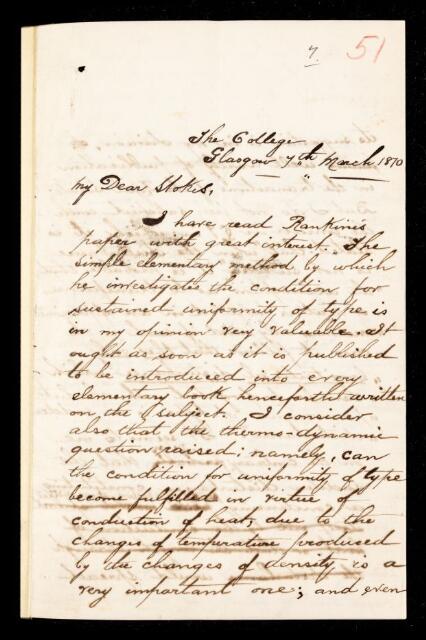 7.
51
The College
Glasgow 7th March 1870
My Dear Stokes,
I have read Rankine's
paper with great interest. The
simple elementary method by which
he investigates the condition for
sustained uniformity of type is
in my opinion very valuable. It
ought as soon as it is published
to be introduced into every
elementary book henceforth written
on the subject. I consider
also that the thermo-dynamic
question raised; namely, can
the condition for uniformity of type
become fulfilled in virtue of
conduction of heat, due to the
changes of temperature produced
by the changes of density, is a
very important one; and even